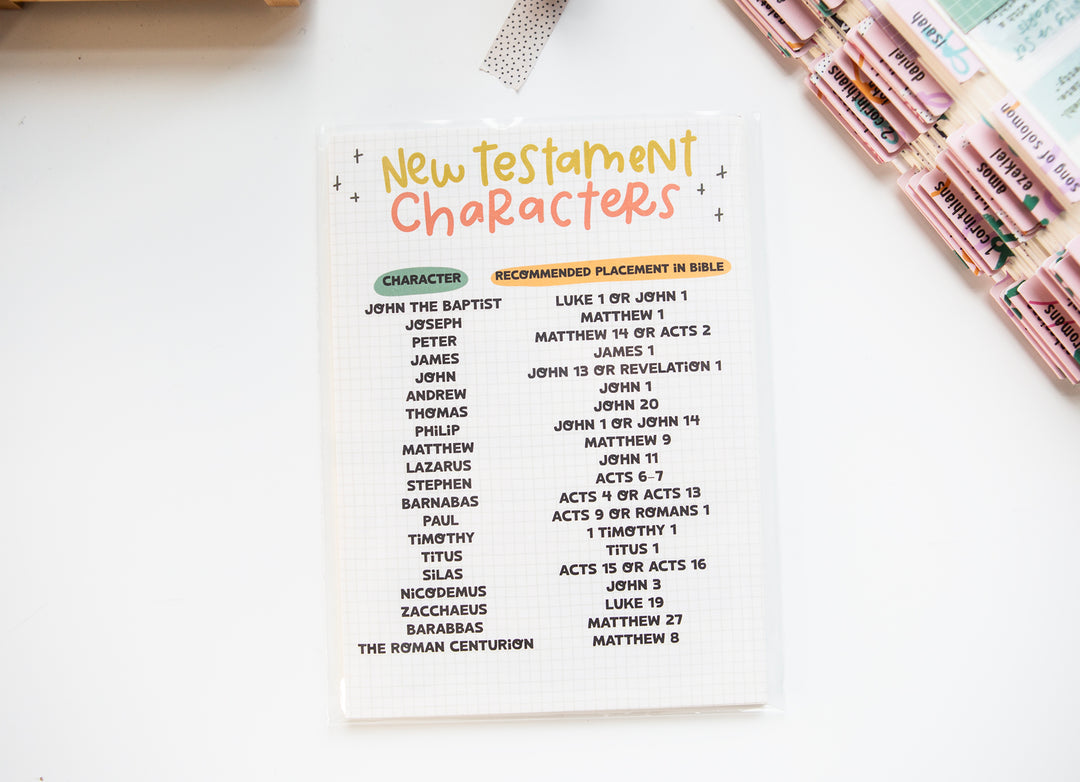 New Testament
Characters
CHARACTER RECOMMENDED PLACEMENT IN BIBLE
JOHN THE BAPTIST LUKE 1 OR JOHN 1
JOSEPH MATTHEW 1
PETER MATTHEW 14 OR ACTS 2
JAMES JAMES 1
JOHN JOHN 13 OR REVELATION 1
ANDREW JOHN 1
THOMAS JOHN 20
PHILIP JOHN 1 OR JOHN 14
MATTHEW MATTHEW 9
LAZARUS JOHN 11
STEPHEN ACTS 6-7
BARNABAS ACTS 4 OR ACTS 13
PAUL ACTS 9 OR ROMANS 1
TIMOTHY 1 TIMOTHY 1
TITUS TITUS 1
SILAS ACTS 15 OR ACTS 16
NICODEMUS JOHN 3
ZACCHAEUS LUKE 19
BARABBAS MATTHEW 27
THE ROMAN CENTURION MATTHEW 8
Isaiah
daniel
2 corinthians
song of solomon
ezekiel
amos
corinthians
romans